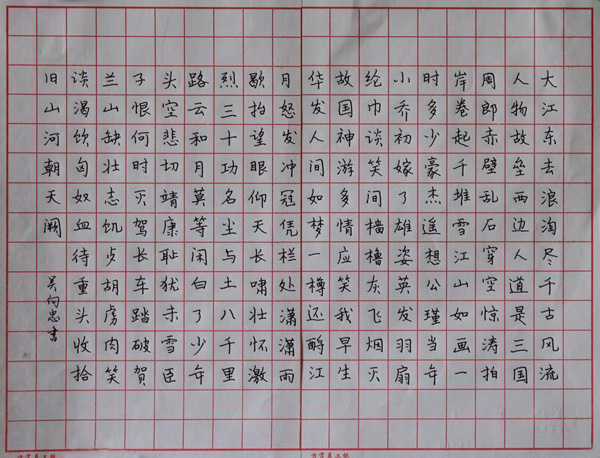 大江东去浪淘尽千古风流
人物故垒西边人道是三国
周郎赤壁乱石穿空惊涛拍
岸卷起千堆雪江山如画一
时多少豪杰遥想公瑾当年
小乔初嫁了雄姿英发羽扇
纶巾谈笑间樯橹灰飞烟灭
故国神游多情应笑我早生
华发人间如梦一樽还酹江
月怒发冲冠凭栏处潇潇雨
歇抬望眼仰天长啸壮怀激
烈三十功名尘与土八千里
路云和月莫等闲白了少年
头空悲切靖康耻犹未雪臣
子恨何时灭驾长车踏破贺
兰山缺壮志饥歺胡虏肉笑
谈渴饮匈奴血待重头收拾
旧山河朝天阙
吴向忠书